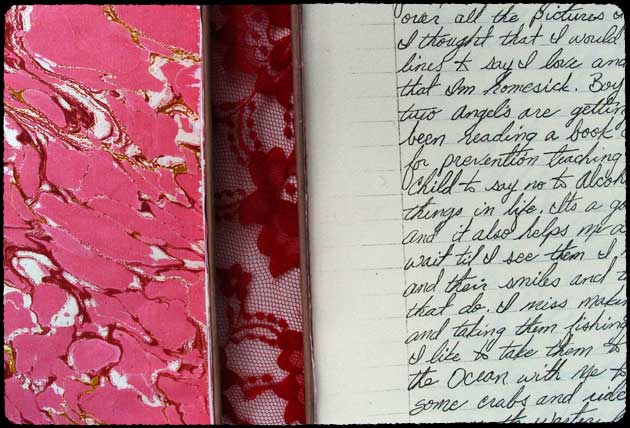 over all the pictures
I thought that I would
lines to say I love and
that I'm homesick. Boy
two angels are getting
been reading a book
for prevention teaching
child to say no to Alcohol
things in life. Its a
and it also helps me
wait til I see them I
and their smiles and
that do. I miss making
and taking them fishing
I like to take them to
the Ocean with me to
some crabs and ride